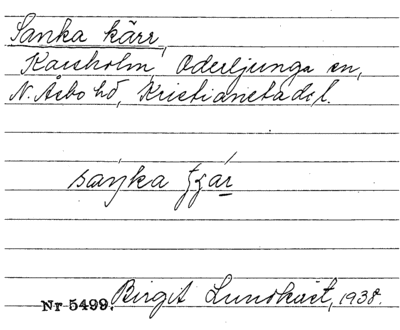 Sanka kärr,
Karsholm, Oderljunga sn,
N. Åsbo hd, Kristianstads l.
saŋka ʈʂár
Nr 5499. Birgit Lundkvist, 1938.